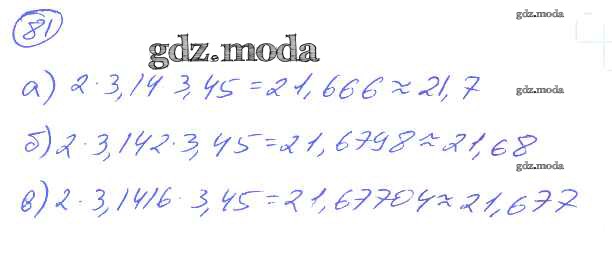 81
gdz.moda
gdz.moda
а) 2·3,14 3,45=21,666≈21,7
gdz.moda
б) 2·3,142·3,45=21,6798≈21,68
gdz.moda
в) 2·3,1416·3,45=21,67704≈21,677